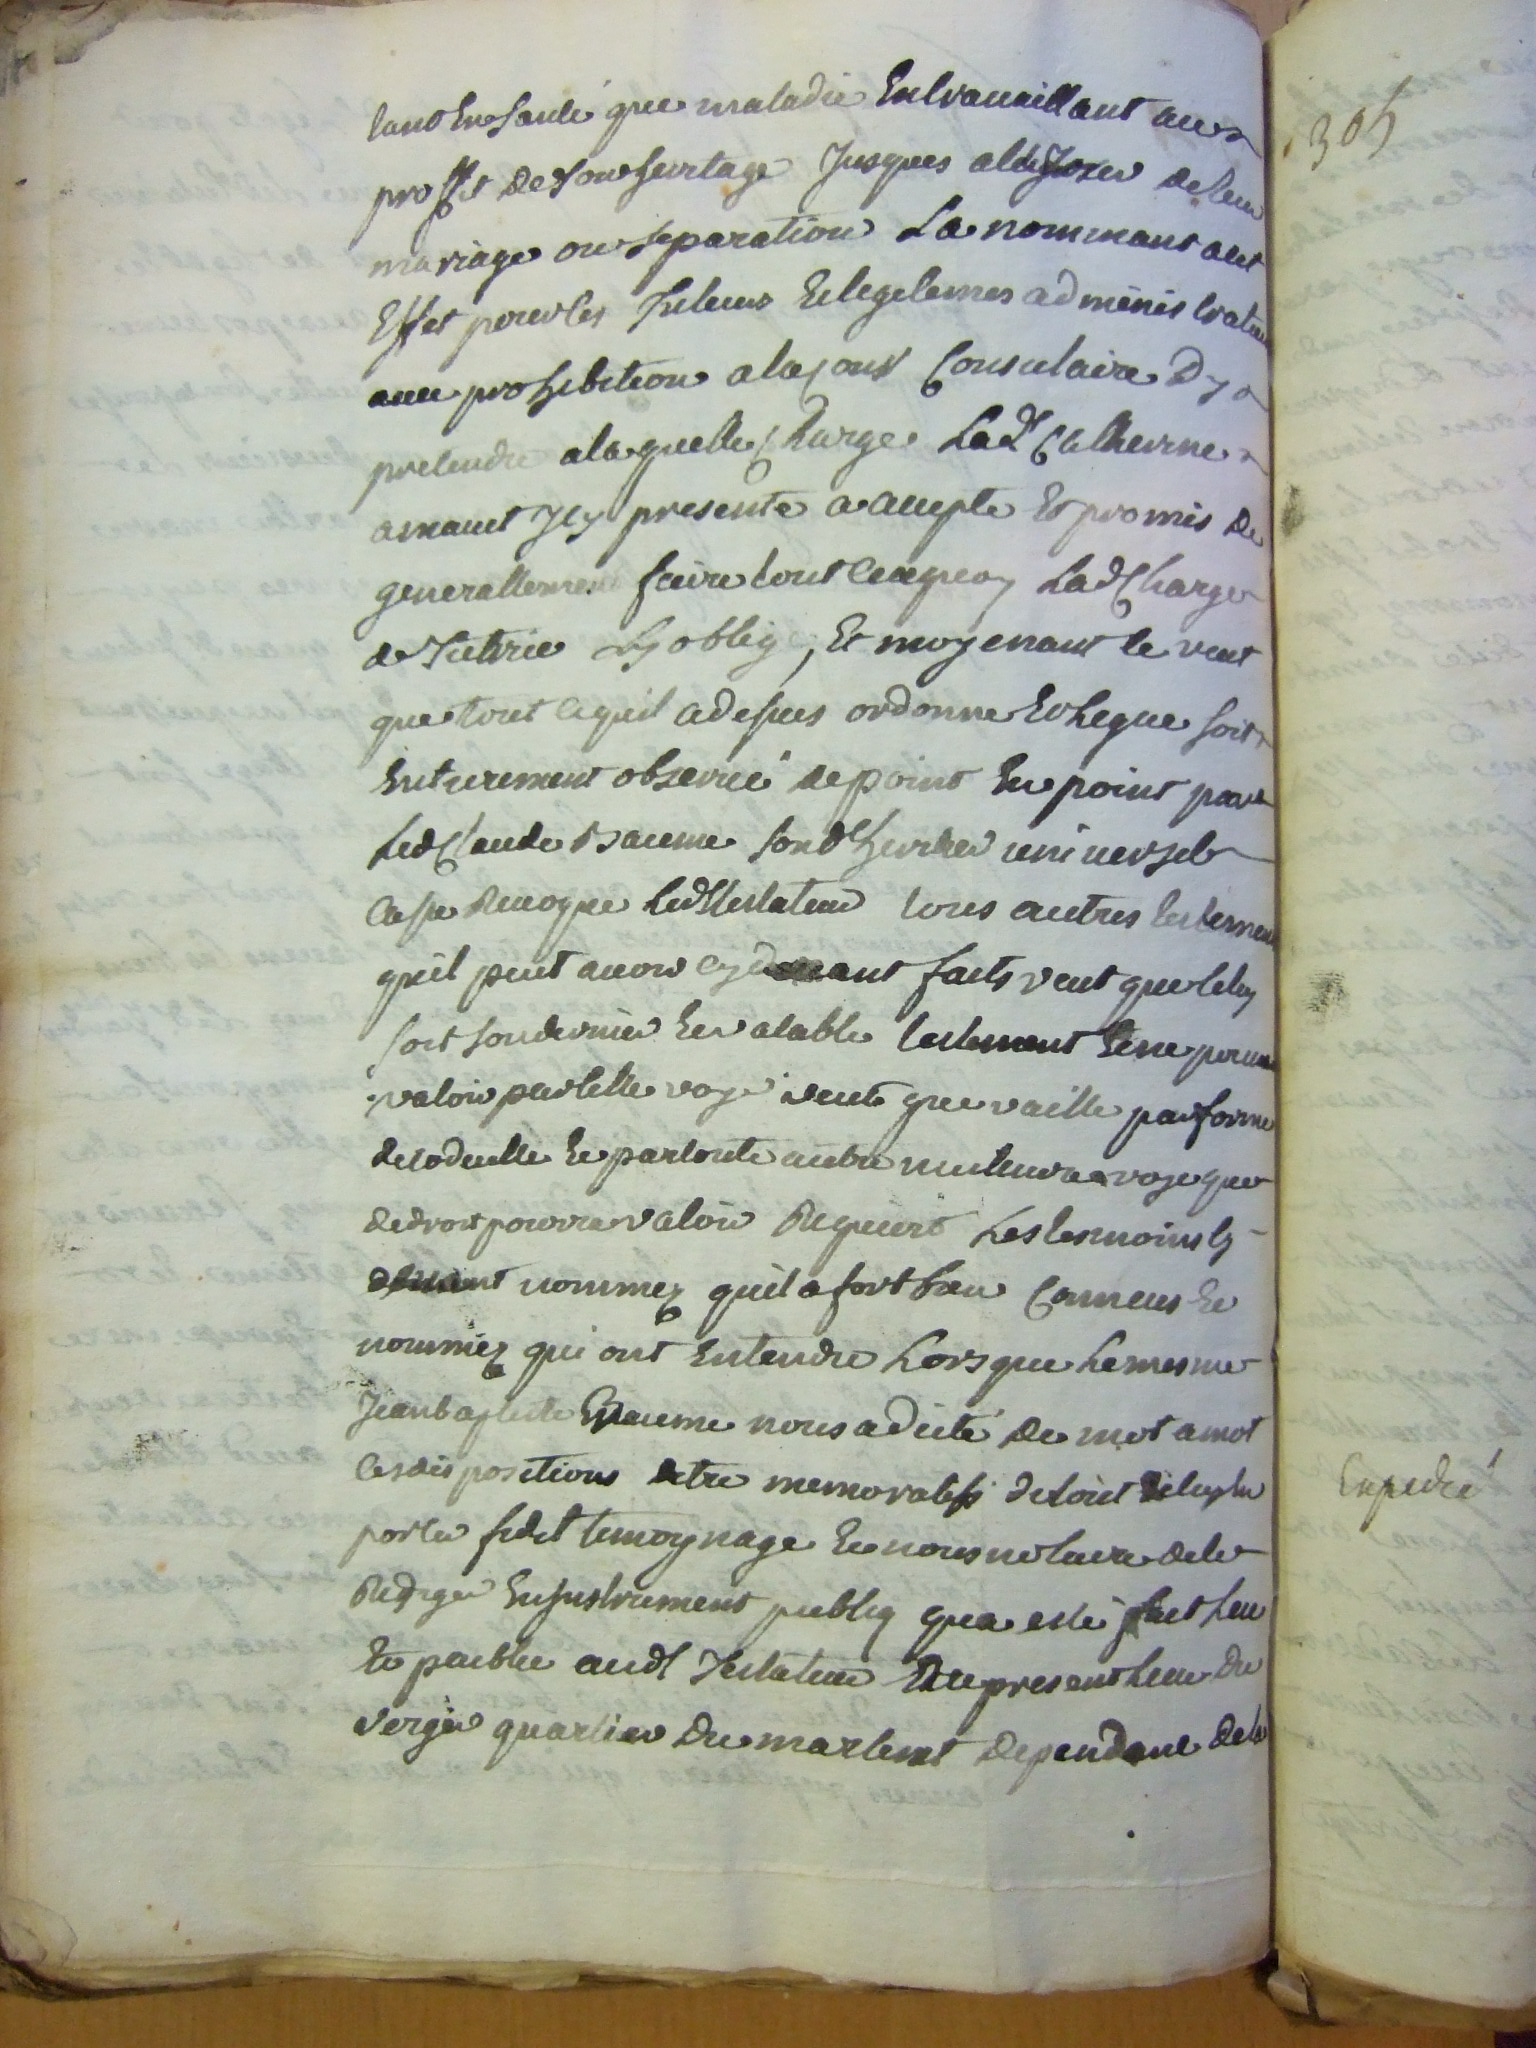 tant en santé que maladie en travaillant au
proffit de son heritage jusques a de leur
mariage ou separation La nommant a cet
Effet pour les Tuteur et legitemes administrateur
avec prohibition a la court Consulaire d y
pretendre a laquelle Charge Lad Catherine
amauet Icy presente a accepte Et promis de
generallement faire tout ce a quoy Lad Charge
de Tuterie Ly oblige, Et moyenant ce veut
que tout ce quil a desus ordonne Et legue soit
Entierement observé de point En point par
Led Claude Baume sond heritier universel
Casse Revoque Led Testateur tous autres testemens
quil peut avoir cy devant faits veut que celuy
soit son dernier Et valable testement Et ne pouvant
valoir par telle voye veut que vaille par forme
de codicille Et par toute autre meilleure voye que
de droit pourra valoir Requiert Les tesmoins cy
devant nommez quil a fort bien Conneus Et
nommez qui ont Entendu Lors que Le mesme
Jean baptiste Baume nous a dicté de mot a mot
Ces dispositions detre memoratifs de tout Et luy En
porter fidel temoynage Et nous notaire de le
Rediger En Instrument publiq qua esté fait leu
Et publie aud Testateur Et au present lieu du
verger quartier du martinet dependant de la
305
Expedié